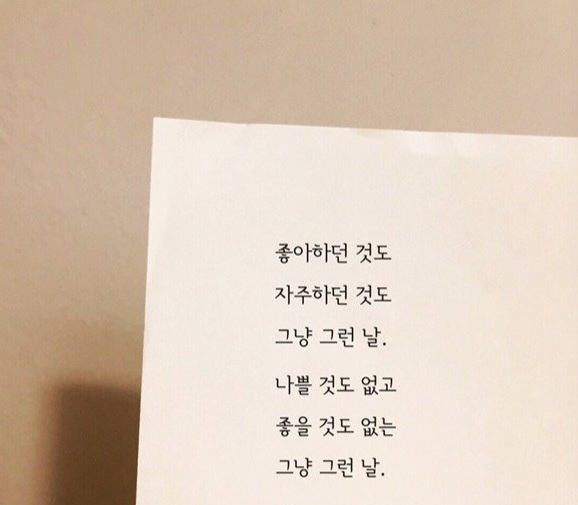 좋아하던 것도
자주하던 것도
그냥 그런 날.
나쁠 것도 없고
좋을 것도 없는
그냥 그런 날.